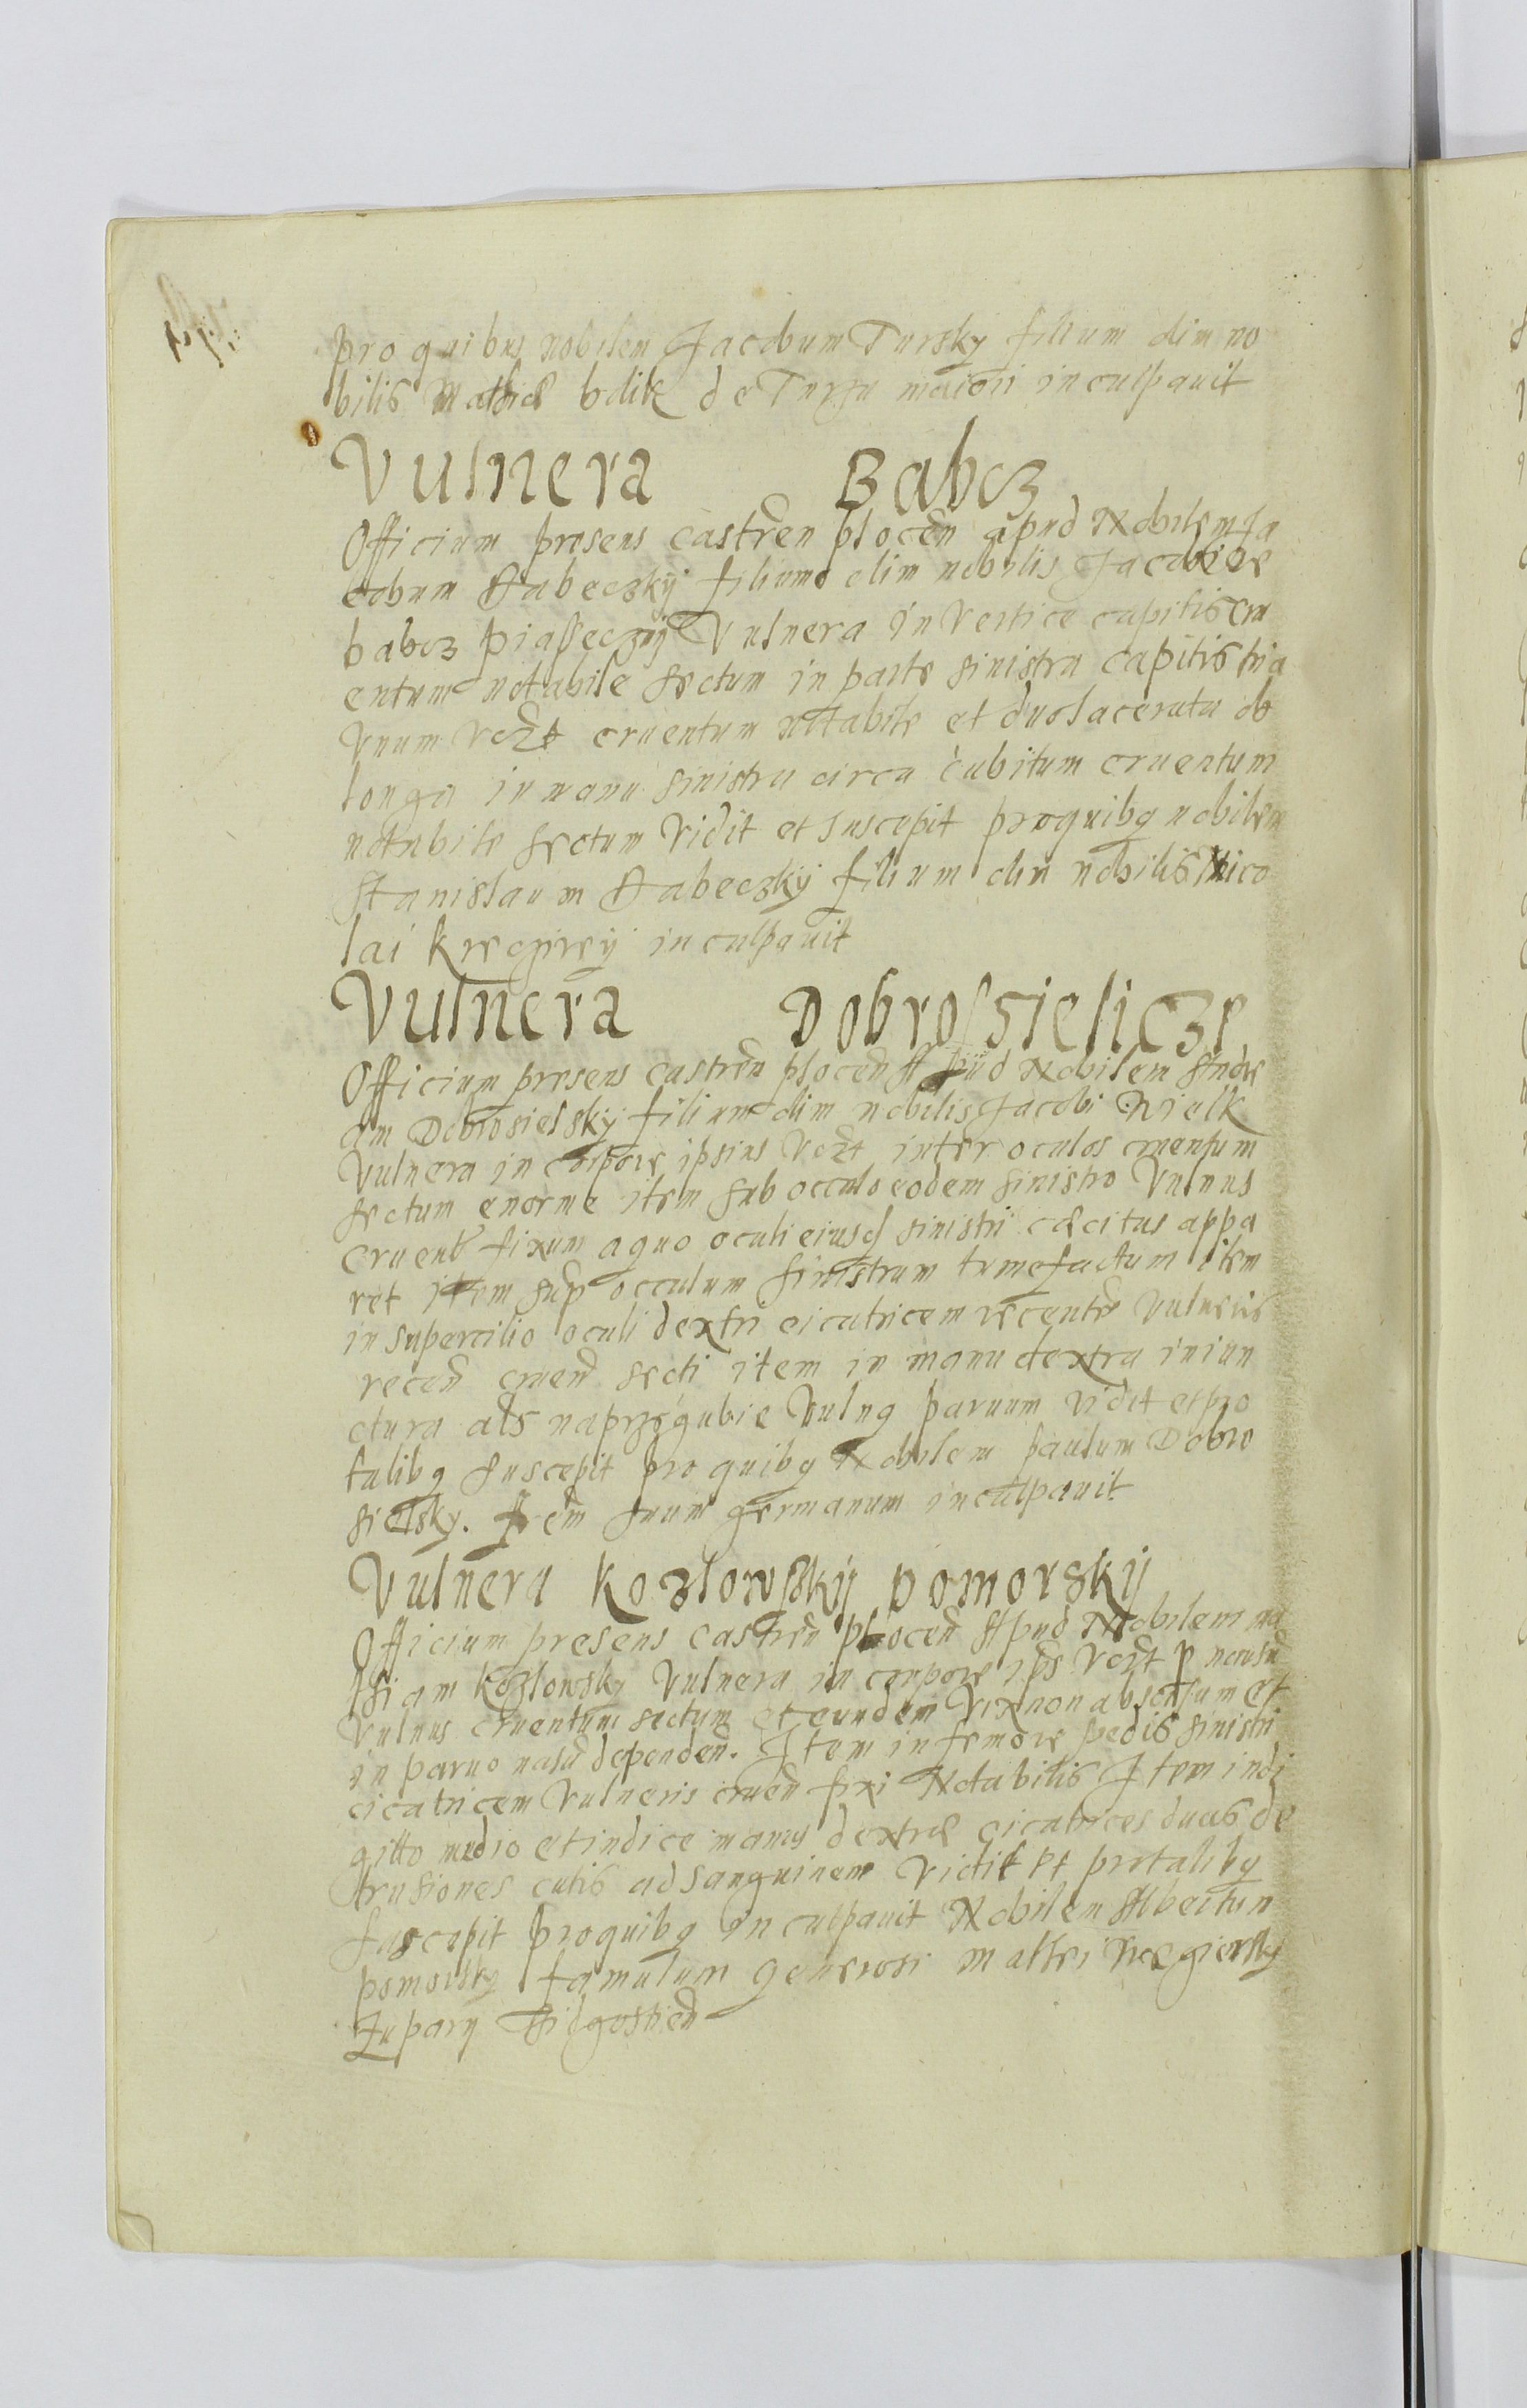 pro quibus nobilem Jacobum Tursky filium olim no
bilis Mathiæ bdik de Tursu maiori inculpauit
Vulnera Babcz
Officium presens castren plocen apud Nobilem Ja
cobum Babeczkÿ filium olim nobilis Jacobi de
babcz piaseczny Vulnera in vertice capitis cru
entum notabile sectum in parte sinistra capitis tria
vnum vczt cruentum notabile et duo lacerata ob
longa in manu sinistra circa cubitum cruentum
notabile sectum vidit et suscepit pro quibq nobilem
Stanislaum Babeczkÿ filium olim nobilis Nico
lai inculpauit
Vulnera Dobrossielicze
Officium presens castren plocen Apud Nobilem Andre
am Dobrosielsky filium olim nobilis Jacobi Wielk
Vulnera in corpore ipsius vczt inter oculos cruentum
sectum enorme item sub occulo eodem sinistro Vulnus
cruent fixum a quo oculi eiusd sinistri cæcitas appa
ret item sup occulum sinistrum tumefactum item
in supercilio oculi dextri cicatricem recentem vulneris
recen cruen secti item in manu dextra in iun
ctura als naprzegubie Vulnq paruum vidit et pro
talibq suscepit pro quibq Nobilem paulum Dobro
sielsky. frem suum germanum inculpauit
Vulnera Kozlowskÿ pomorskÿ
Officium presens castren plocen Apud Nobilem Ma
thiam Kozlowsky Vulnera in corpore ips vczt
Vulnus cruentum sectum et eundem vix non abscissum et
in paruo nasu dependen. Item in femore pedis sinistri
cicatricem Vulneris cruen fixi Notabilis Item in di
gitto medio et indice manus dextræ cicatrices duas de
trusiones cutis ad sanguinem vidit et pro talibq
suscepit pro quibq inculpauit Nobilem Albertum
pomorsky famulum generosi Mathei
Zupary Bidgostien